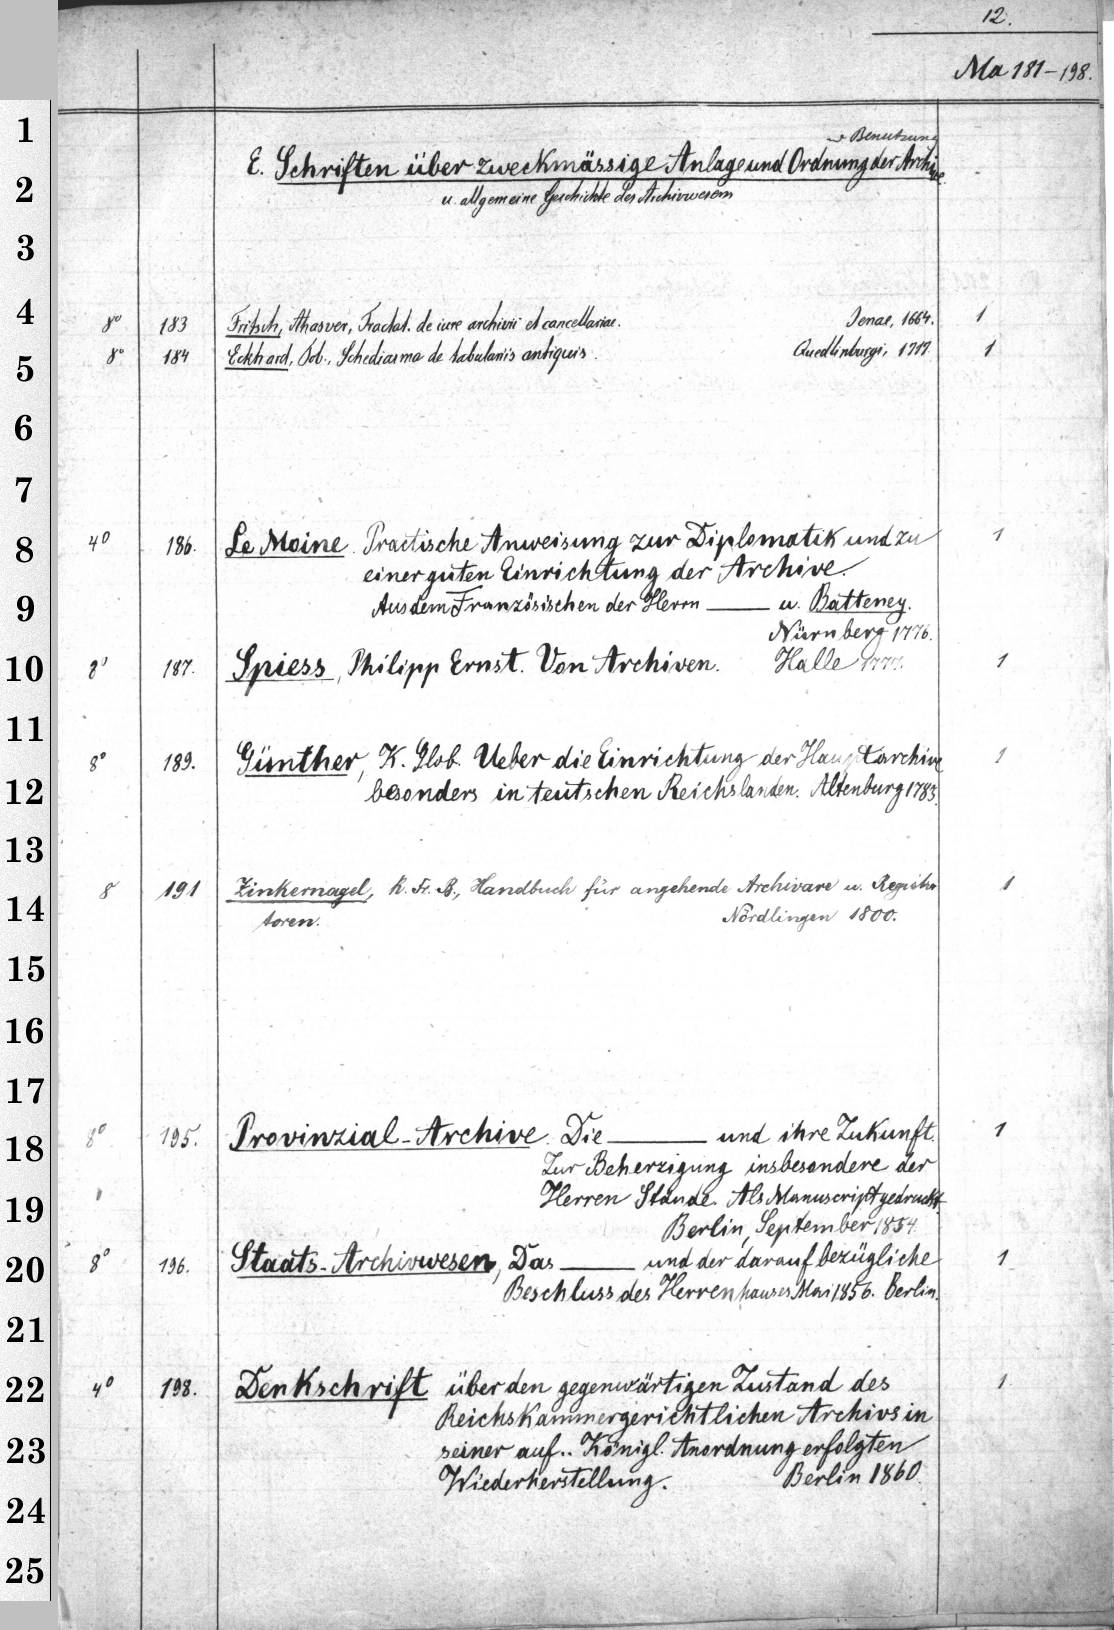 12.
Ma 181-198.
u. Benutzung
E. Schriften über zweckmässige Anlage und Ordnung der Archive.
u. allgemeine Geschichte des Archivwesens
8° 183 Fritsch, Ahasver, Tractat. de iure archivii et cancellariae. Jenae, 1664. 1
8° 184 Eckhard, Tob., Schediasma de tabulariis antiquis. Quedlinburgi, 1717. 1
4° 186. Le Moine. Practische Anweisung zur Diplomatik und zu 1
einer guten Einrichtung der Archive.
Aus dem Französischen der Herrn ——— u. Batteney.
Nürnberg 1776.
8° 187. Spiess, Philipp Ernst. Von Archiven. Halle 1777. 1
8° 189. Günther, K. Glob. Ueber die Einrichtung der Hauptarchive 1
besonders in teutschen Reichslanden. Altenburg 1783.
8 191 Zinkernagel, K. Fr. B., Handbuch für angehende Archivare u. Registra 1
toren. Nördlingen 1800.
8° 195. Provinzial-Archive. Die ——— und ihre Zukunft. 1
Zur Beherzigung insbesondere der
Herren Stände. Als Manuscript gedruckt
Berlin, September 1854.
8° 196. Staats-Archivwesen, Das ——— und der darauf bezügliche 1
Beschluss des Herrenhauses Mai 1856. Berlin.
4° 198. Denkschrift über den gegenwärtigen Zustand des 1
Reichskammergerichtlichen Archivs in
seiner auf.. Königl. Anordnung erfolgten
Wiederherstellung. Berlin 1860.
1
2
3
4
5
6
7
8
9
10
11
12
13
14
15
16
17
18
19
20
21
22
23
24
25